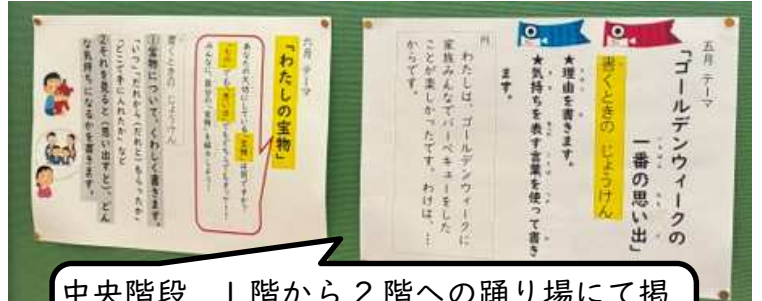 五月 テーマ
「ゴールデンウィークの
一番の思い出」
書くときの じょうけん
★理由を書きます。
★気持ちを表す言葉を使って書き
ます。
例
わたしは、ゴールデンウィークに
家族みんなでバーベキューをした
ことが楽しかったです。わけは、…
からです。
六月 テーマ
「わたしの宝物」
あなたの大切にしている「宝物」は何ですか？
「もの」でも、「思い出」でもどちらでもオッケー！
みんなに、自分の「宝物」を紹介しよう！
書くときの じょうけん
①宝物について、くわしく書きます。
「いつ」「だれから（だれと）もらったか」
「どこで手に入れたか」など
②それを見ると（思い出すと）、どん
な気持ちになるかを書きます。
中央階段 1階から2階への踊り場にて掲